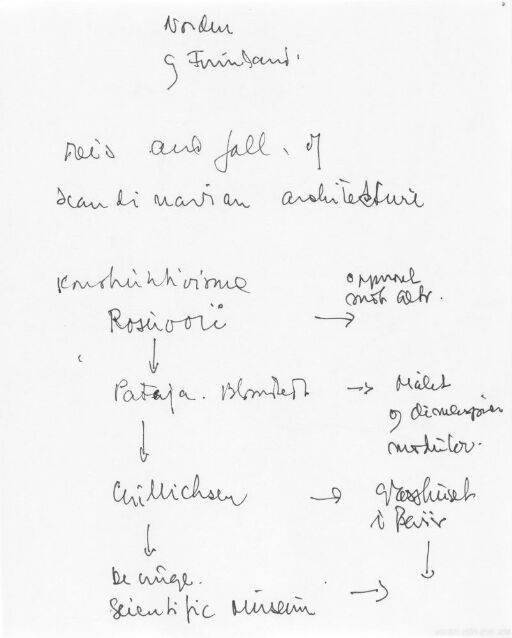 Norden
og Finnland.
reis and fall. of
scandinavian architecture
Konstruktivisme
Rosivoori → opprørel mot Aalto.
↓
Pataja. Blomstedt → Målet
og dimensjon
modulor.
↓
Gullichsen → glasshuset
i Paris
↓ ↓
De unge.
Scientific Museum →